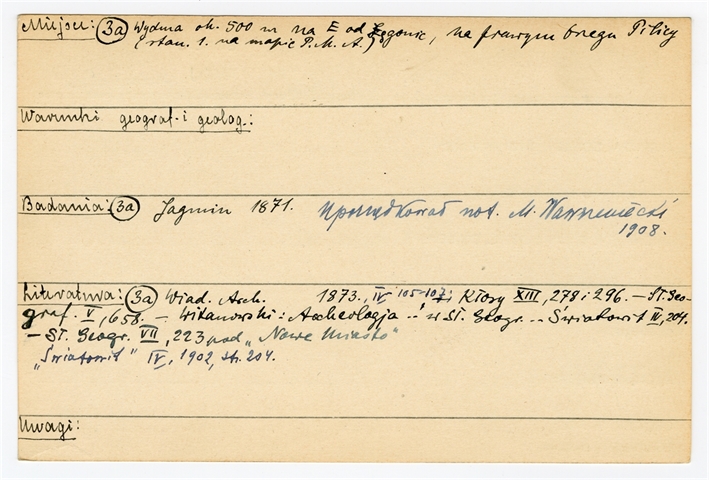 Miejsc: (3a) Wydma ok. 500 m na E od Łęgonic, na prawym brzegu Pilicy
(stan. 1. na mapie P.M.A.)
Warunki geograf. i geolog.:
Badania: (3a) Jagmin 1871. Uporządkował not. M. Wawrzeniecki
1908.
Literatura: (3a) Wiad. Arch. 1873., IV 105-107; Kłosy XIII, 278 i 296. — Sł. Geo-
graf. V, 658. — Witanowski: Archeologja .. w Sł. Geogr. .. Światowit IV, 204.
— Sł. Geogr. VII, 223 pod „Nowe Miasto"
„Światowit" IV, 1902, str. 204.
Uwagi: